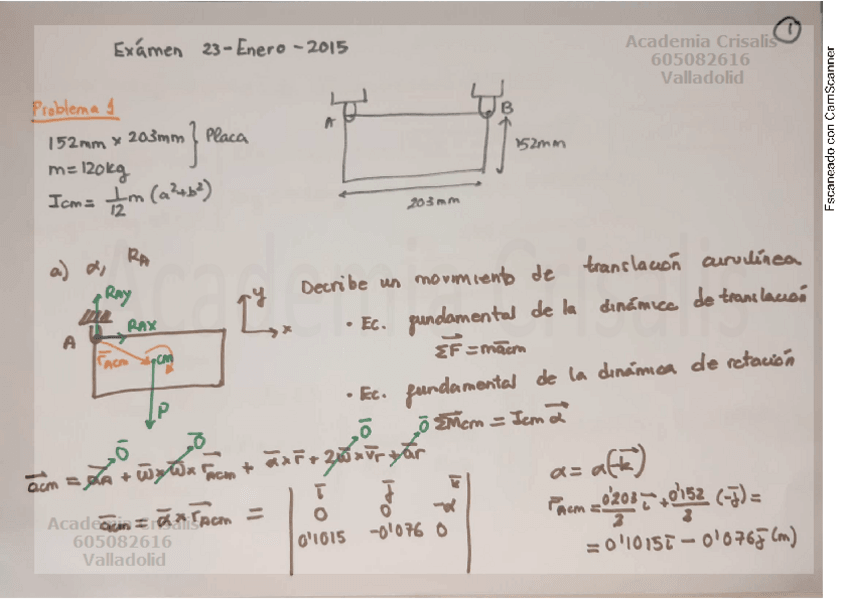 1
Exámen 23-Enero-2015
Academia Crisalis
605082616
Valladolid
Problema 1
152mm x 203mm } Placa
m = 120kg
Icm = 1/12 m (a²+b²)
A
B
152mm
203mm
a) α, RA
RAY
RAX
A
rAcm
cm
P
y
x
Describe un movimiento de translación curvilínea
• Ec. fundamental de la dinámica de translación
ΣF = macm
• Ec. fundamental de la dinámica de rotación
ΣMcm = Icm α
acm = aA + ω x ω x rAcm + α x r + 2ω x vr + ar
0 0 0 0
acm = α x rAcm = | i j k |
| 0 0 -α |
| 0'1015 -0'076 0 |
α = α(-k)
rAcm = 0'203/2 i + 0'152/2 (-j) =
= 0'1015i - 0'076j (m)
Academia Crisalis
605082616
Valladolid
Academia Crisalis
Escaneado con CamScanner